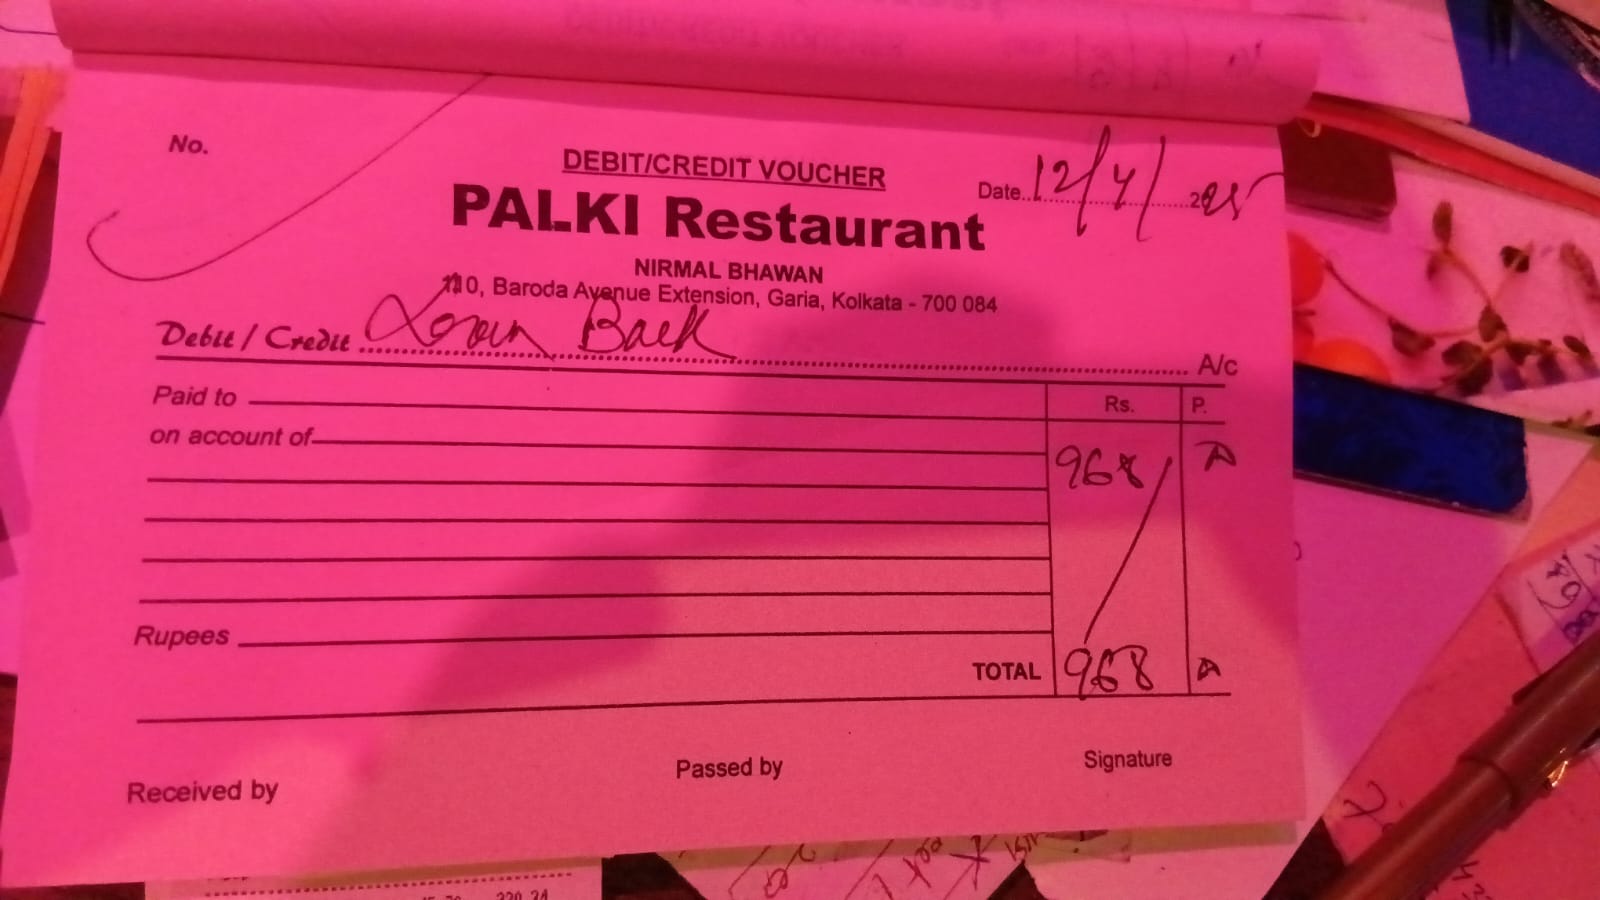 No.
DEBIT/CREDIT VOUCHER
Date 12/4/2025
PALKI Restaurant
NIRMAL BHAWAN
110, Baroda Avenue Extension, Garia, Kolkata - 700 084
Debit / Credit Back A/c
Paid to
Rs. P.
on account of
968
Rupees
TOTAL 968
Received by
Passed by
Signature